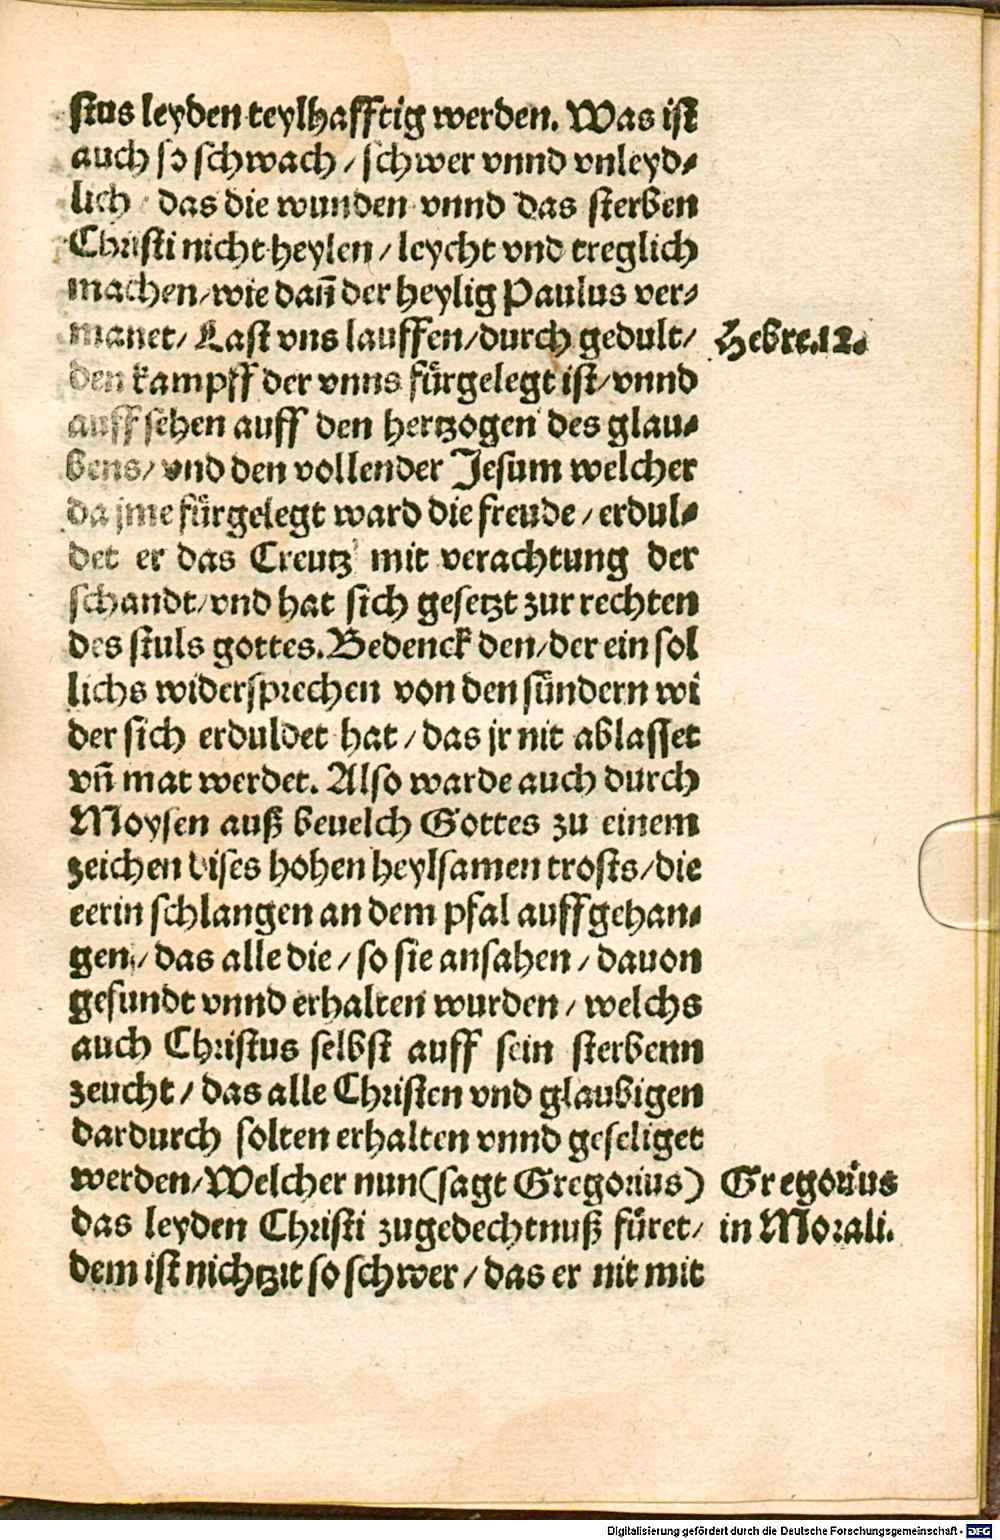 stus leyden teylhafftig werden. Was ist
auch so schwach / schwer vnnd vnleyd⸗
lich / das die wunden vnnd das sterben
Christi nicht heylen / leycht vnd treglich
machen / wie dañ der heylig Paulus ver⸗
manet / Last vns lauffen / durch gedult /
Hebre.12.
den kampff der vnns fürgelegt ist / vnnd
auff sehen auff den hertzogen des glau⸗
bens / vnd den vollender Jesum welcher
da jme fürgelegt ward die freude / erdul⸗
det er das Creutz mit verachtung der
schandt / vnd hat sich gesetzt zur rechten
des stuls gottes. Bedenck den / der ein sol
lichs widersprechen von den sündern wi
der sich erduldet hat / das jr nit ablasset
vñ mat werdet. Also warde auch durch
Moysen auß beuelch Gottes zu einem
zeichen dises hohen heylsamen trosts / die
eerin schlangen an dem pfal auffgehan⸗
gen / das alle die / so sie ansahen / dauon
gesundt vnnd erhalten wurden / welchs
auch Christus selbst auff sein sterbenn
zeucht / das alle Christen vnd glaubigen
dardurch solten erhalten vnnd geseliget
werden / Welcher nun (sagt Gregorius)
Gregorius
das leyden Christi zugedechtnuß füret /
in Morali.
dem ist nichtzit so schwer / das er nit mit
Digitalisierung gefördert durch die Deutsche Forschungsgemeinschaft - DFG